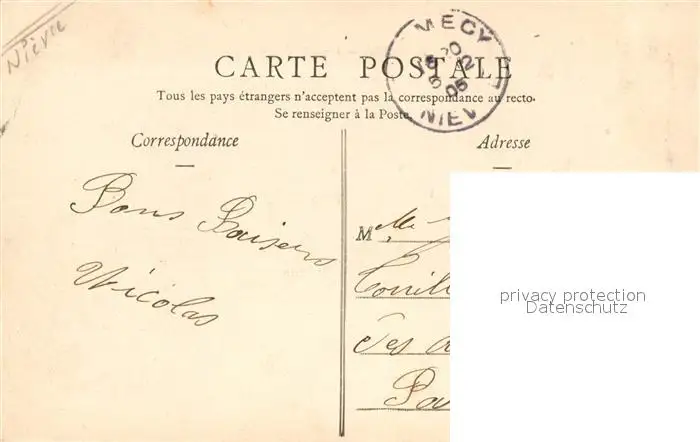 Nièvre
CARTE POSTALE
Tous les pays étrangers n'acceptent pas la correspondance au recto.
Se renseigner à la Poste.
Correspondance
Adresse
Bons Baisers
Nicolas
M lle
privacy protection
Datenschutz
MECY
NIEV